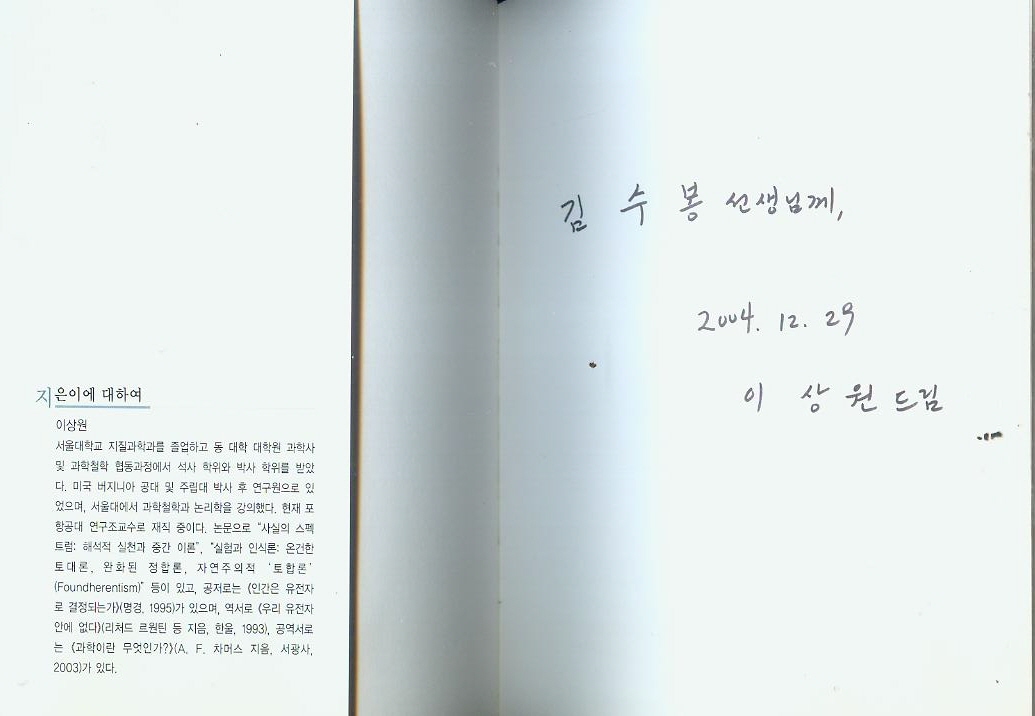 지은이에 대하여
이상원
서울대학교 지질과학과를 졸업하고 동 대학 대학원 과학사
및 과학철학 협동과정에서 석사 학위와 박사 학위를 받았
다. 미국 버지니아 공대 및 주립대 박사 후 연구원으로 있
었으며, 서울대에서 과학철학과 논리학을 강의했다. 현재 포
항공대 연구조교수로 재직 중이다. 논문으로 “사실의 스펙
트럼: 해석적 실천과 중간 이론”, “실험과 인식론: 온건한
토대론, 완화된 정합론, 자연주의적 ‘토합론’
(Foundherentism)” 등이 있고, 공저로는 《인간은 유전자
로 결정되는가》(명경, 1995)가 있으며, 역서로 《우리 유전자
안에 없다》(리처드 르원틴 등 지음, 한울, 1993), 공역서로
는 《과학이란 무엇인가?》(A. F. 차머스 지음, 서광사,
2003)가 있다.
김 수 봉 선생님께,
2004. 12. 29
이 상 원 드림